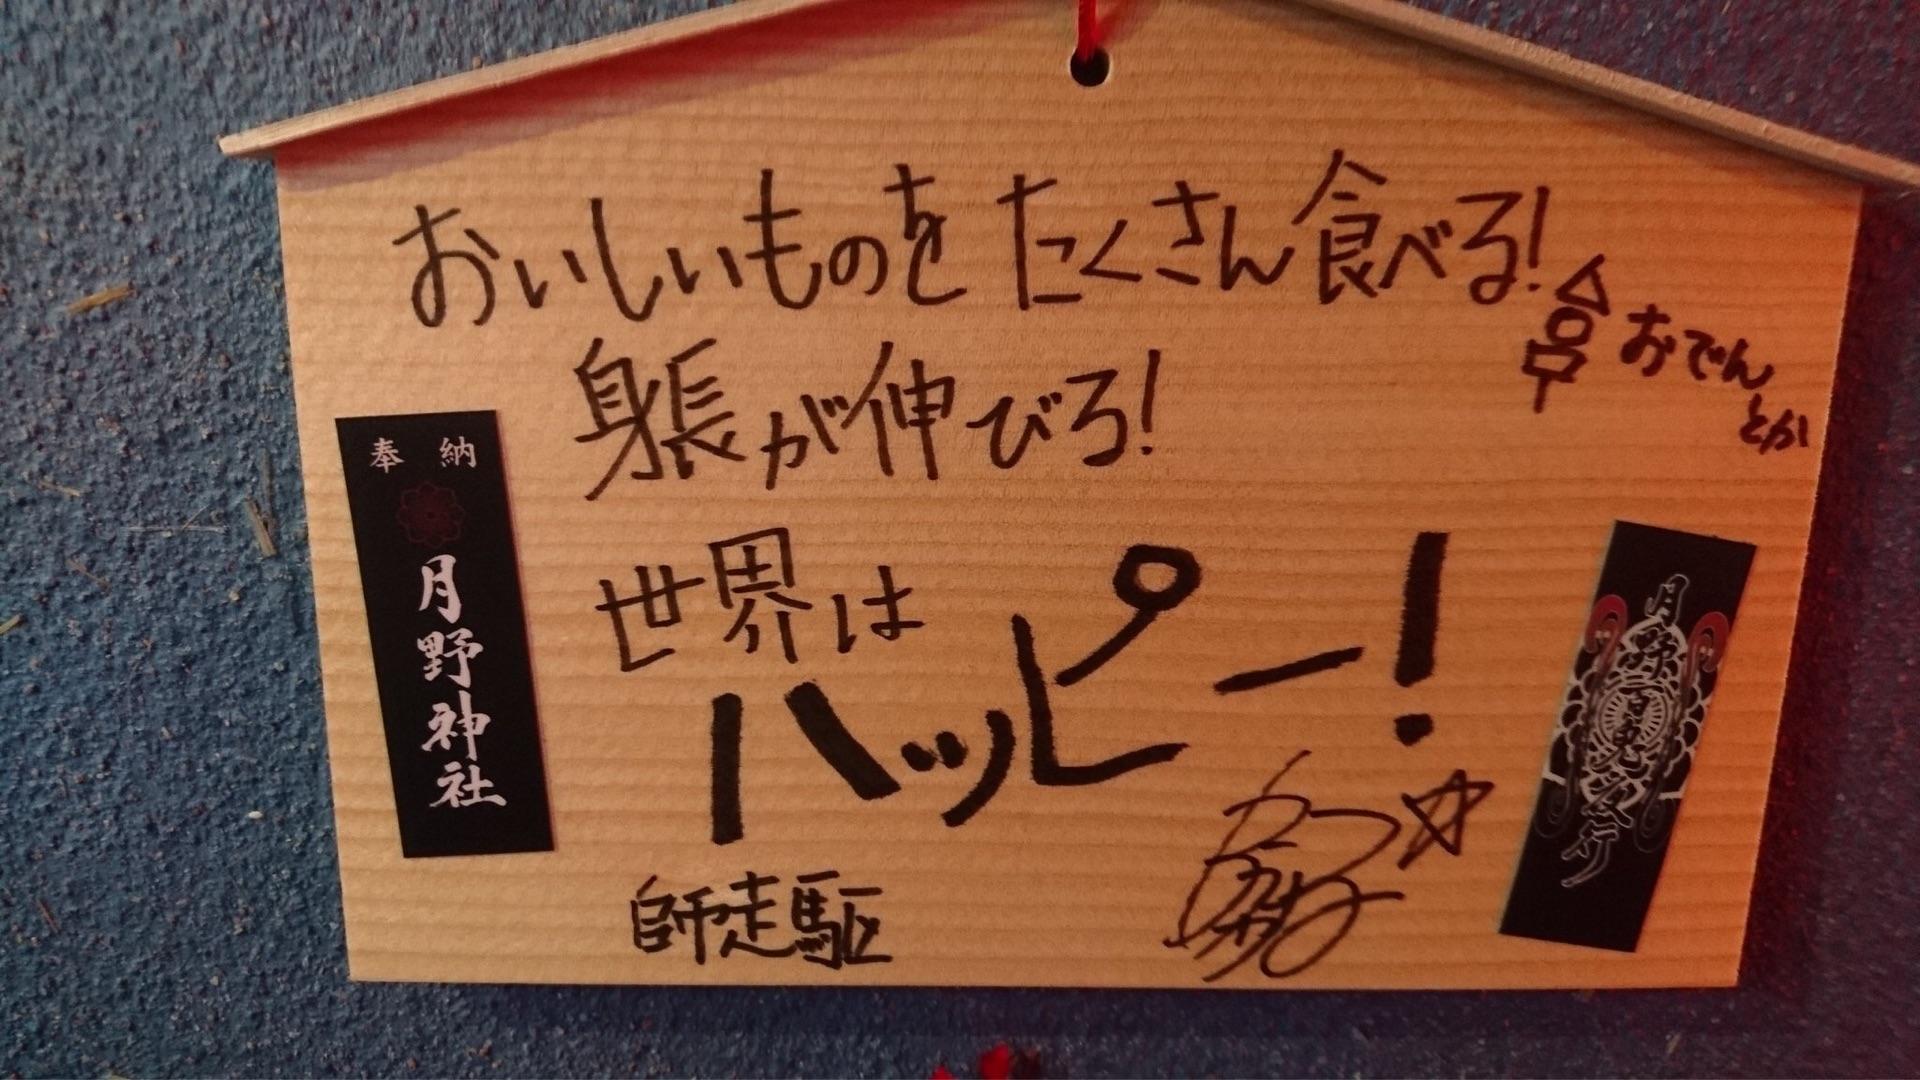 おいしいものをたくさん食べる!
おでん
とか
身長が伸びろ!
世界は
ハッピー!
師走駆
奉納
月野神社
月野百鬼夜行